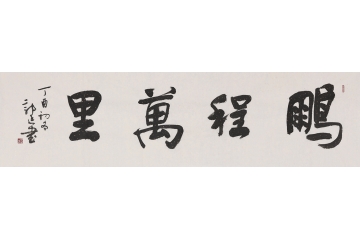 鵬程萬里
丁酉初冬
書